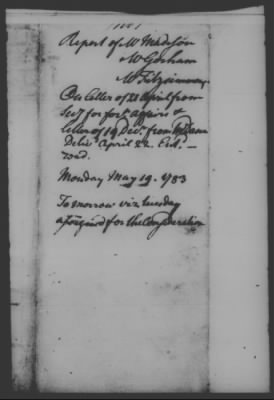 Report of Mr Madison
Mr Gorham
Mr Fitzsimmons
On letter of 21 April from
Secy for forn affairs &
letter of 19 Decr from Mr Dana
Delivd April 22. Ent. —
read.
Monday May 19. 1783
Tomorrow viz tuesday
assigned for the Consideration